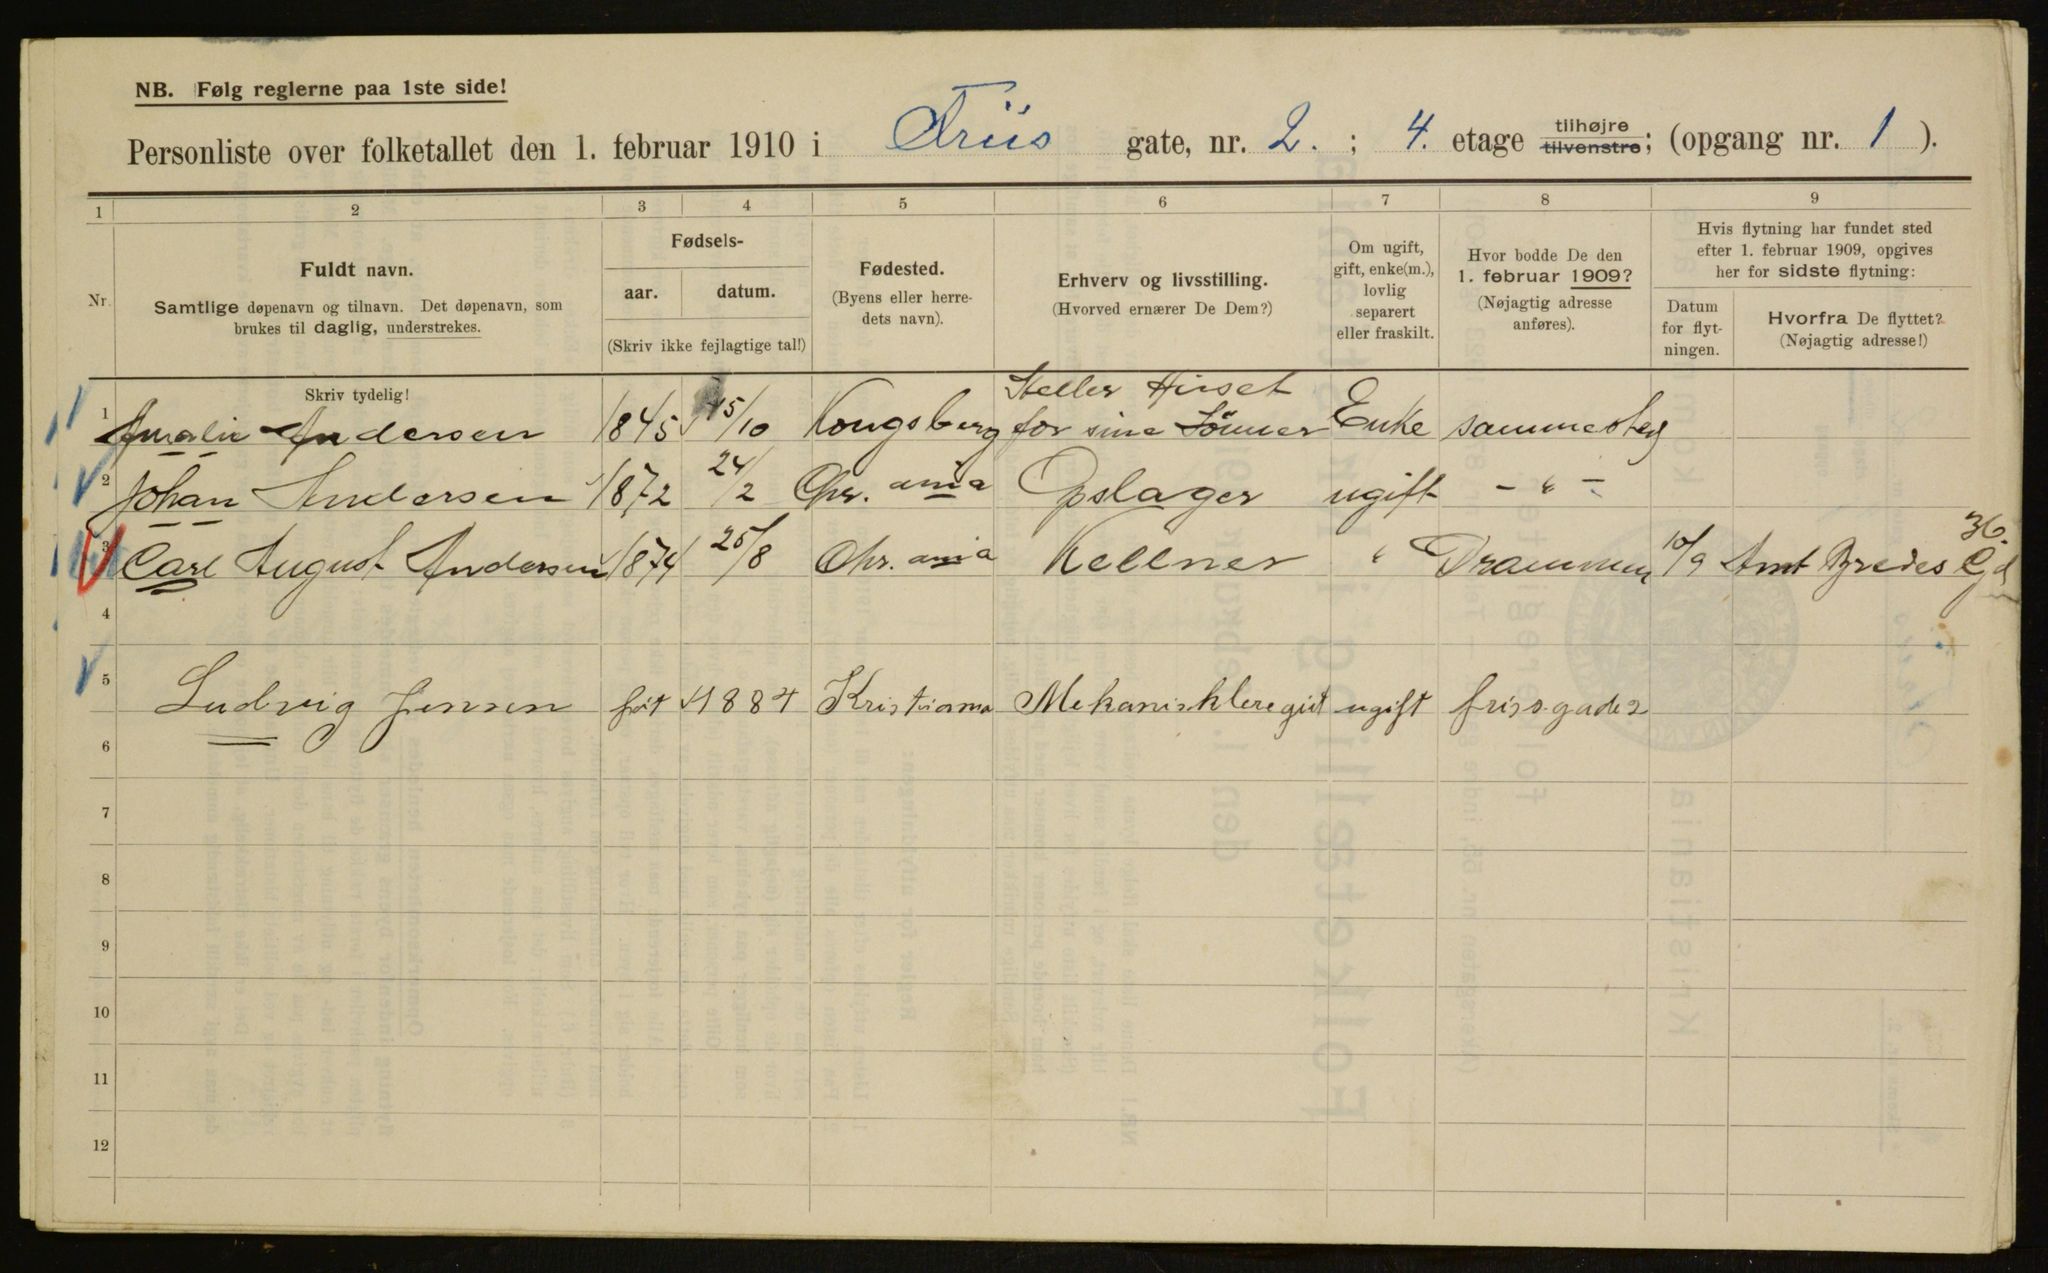 NB. Følg reglerne paa 1ste side!
Personliste over folketallet den 1. februar 1910 i Friis gate, nr. 2. ; 4. etage tilhøjre tilvenstre; (opgang nr. 1 ).
1 2 3 4 5 6 7 8 9
Nr.
Fuldt navn.
Samtlige døpenavn og tilnavn. Det døpenavn, som
brukes til daglig, understrekes.
Fødsels-
aar. datum.
(Skriv ikke fejlagtige tal!)
Fødested.
(Byens eller herre-
dets navn).
Erhverv og livsstilling.
(Hvorved ernærer De Dem?)
Om ugift,
gift, enke(m.),
lovlig
separert
eller fraskilt.
Hvor bodde De den
1. februar 1909?
(Nøjagtig adresse
anføres).
Hvis flytning har fundet sted
efter 1. februar 1909, opgives
her for sidste flytning:
Datum
for flyt-
ningen.
Hvorfra De flyttet?
(Nøjagtig adresse!)
Skriv tydelig!
1 Amalie Andersen 1845 15/10 Kongsberg Steller Huset for sine Sönner Enke sammested
2 Johan Andersen 1872 24/2 Chr. ania Opslager ugift – " –
3 Carl August Andersen 1874 25/8 Chr. ania Kellner " Drammen 10/9 Amt Bredes Gd 36.
4
5 Ludvig Jensen föt 1884 Kristiania ugift frissgade 2
6
7
8
9
10
11
12